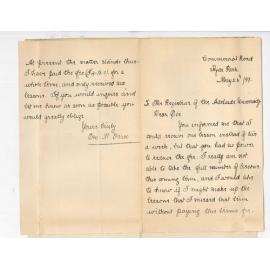 Commercial Road
Hyde Park
May 26th/99.
To The Registrar of the Adelaide University
Dear Sir
You informed me that I
only owe one lesson instead of two
a week, but that you had no power
to reduce the fee. I really am not
able to take the full number of lessons
this coming term, and I would like
to know if I might make up the
lessons that I missed last term
without paying the same fee.
At present the matter stands thus:
I have paid the fee (£4.4.0) for a
whole term, and only received six
lessons. If you would inquire and
let me know as soon as possible you
would greatly oblige
Yours truly